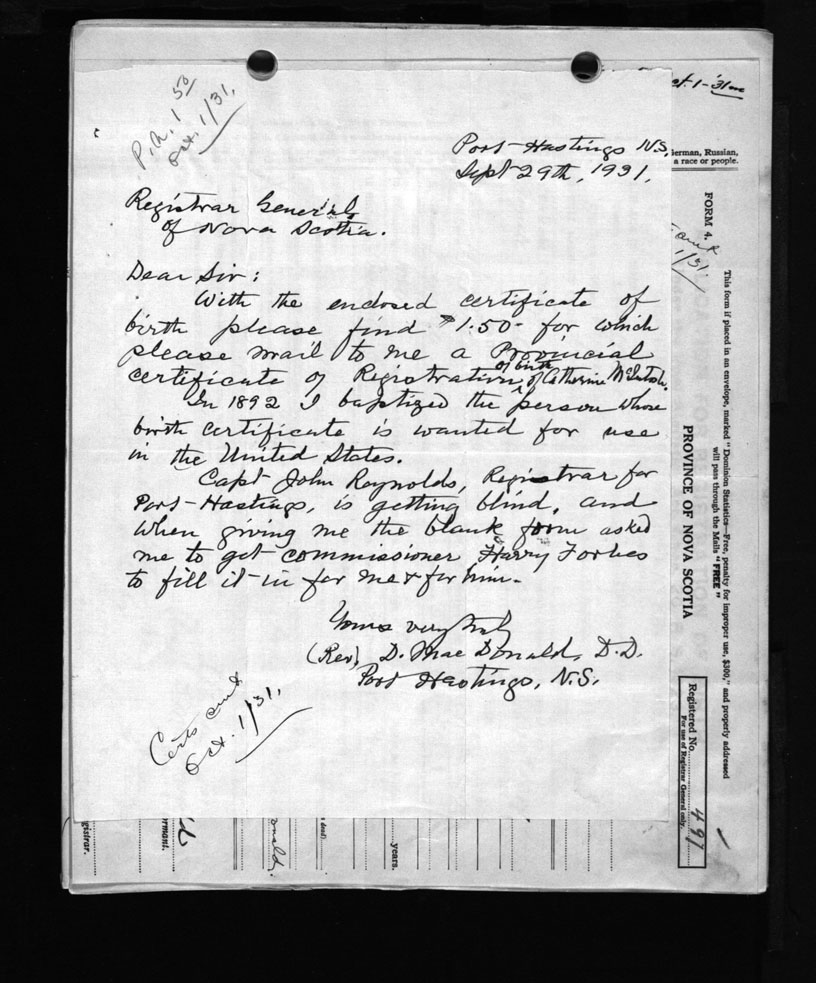 P.N. 1 50
Oct. 1/31.
ct. 1-'31
Port-Hastings N.S.
Sept 29th, 1931.
Registrar General
of Nova Scotia.
Dear Sir:
With the enclosed certificate of
birth please find $1.50 - for which
please mail to me a Provincial
certificate of Registration of birth of Catherine McIntosh.
In 1892 I baptized the person whose
birth certificate is wanted for use
in the United States.
Capt John Reynolds, Registrar for
Port-Hastings, is getting blind, and
when giving me the blank form asked
me to get commissioner Harry Forbes
to fill it in for me & for him.
Yours very truly
(Rev) D. MacDonald, D.D.
Port Hastings, N.S.
Certs
Oct. 1/31.
erman, Russian,
a race or people.
FORM 4.
1/31
This form if placed in an envelope, marked "Dominion Statistics—Free, penalty for improper use, $300," and properly addressed
will pass through the Mails "FREE"
PROVINCE OF NOVA SCOTIA
Registered No. 497
For use of Registrar General only.
gistrar.
rmant.
onald.
s dead)
years.